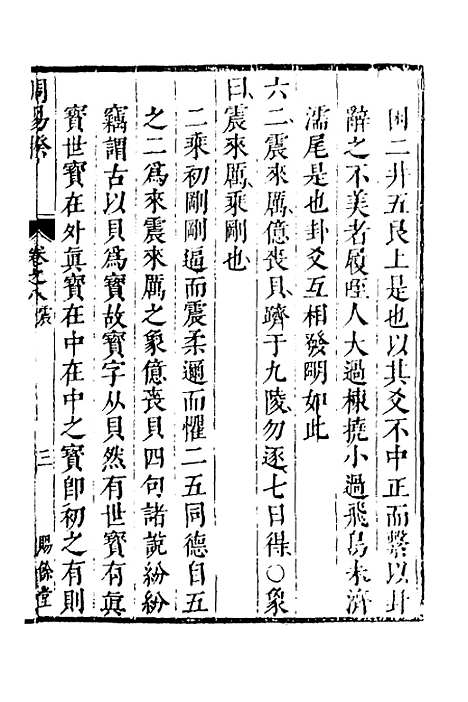 困二井五艮上是也以其爻不中正而繫以卦
辭之不美者履咥人大過棟撓小過飛鳥未濟
濡尾是也卦爻互相發明如此
六二震來厲億喪貝躋于九陵勿逐七日得○象
曰震來厲乘剛也
二乘初剛剛逼而震柔邇而懼二五同德自五
之二爲來震來厲之象億喪貝四句諸說紛紛
竊謂古以貝爲寶故寶字从貝然有世寶有眞
寶世寶在外眞寶在中在中之寶卽初之有則
周易揆
卷之八 震
三
賜餘堂